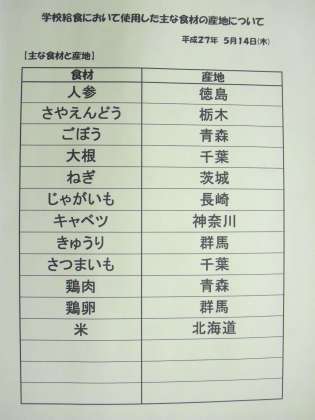 学校給食において使用した主な食材の産地について
平成27年 5月14日(木)
【主な食材と産地】
食材 産地
人参 徳島
さやえんどう 栃木
ごぼう 青森
大根 千葉
ねぎ 茨城
じゃがいも 長崎
キャベツ 神奈川
きゅうり 群馬
さつまいも 千葉
鶏肉 青森
鶏卵 群馬
米 北海道